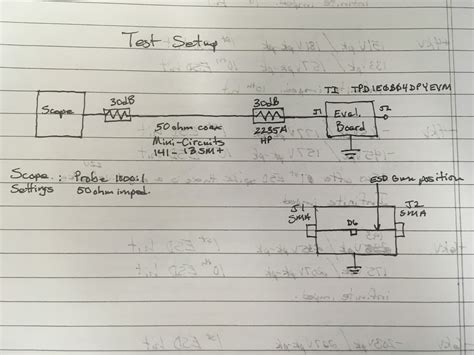 Test Setup
TI TPD1E0B04DPYEVM
30dB
30dB
J1
J2
Scope
Eval.
Board
50 ohm coax
Mini-Circuits
141-13SM+
HP
Scope : Probe 1000:1
Settings 50 ohm imped.
ESD Gun position
J1
SMA
J2
SMA
D6